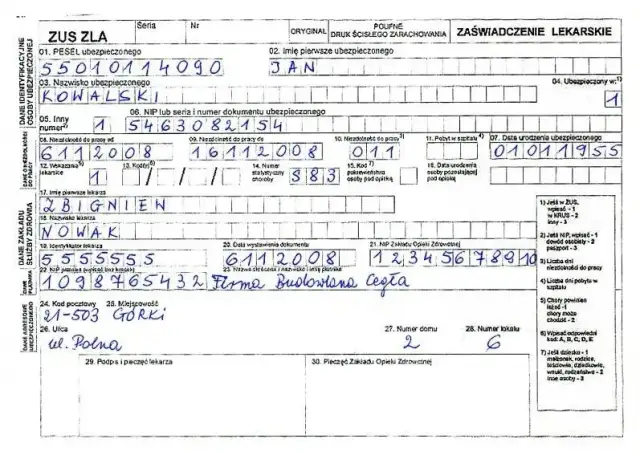 ZUS ZLA
Seria Nr
ORYGINAŁ
POUFNE
DRUK ŚCISŁEGO ZARACHOWANIA
ZAŚWIADCZENIE LEKARSKIE
DANE IDENTYFIKACYJNE OSOBY UBEZPIECZONEJ
01. PESEL ubezpieczonego 02. Imię pierwsze ubezpieczonego
55010114090 JAN
03. Nazwisko ubezpieczonego 04. Ubezpieczony w: 1)
KOWALSKI 1
05. Inny numer 2) 06. NIP lub seria i numer dokumentu ubezpieczonego
1 5463082154
08. Niezdolność do pracy od 09. Niezdolność do pracy do 10. Niezdolność do pracy 3) 11. Pobyt w szpitalu 4) 07. Data urodzenia ubezpieczonego
6112008 16112008 011 01011955
12. Wskazania 5) 13. Kod(y) 6) 14. Numer statystyczny choroby 15. Kod 7) pokrewieństwa osoby pod opieką 16. Data urodzenia osoby pozostającej pod opieką
1 / / / S83
DANE ZAKŁADU SŁUŻBY ZDROWIA
17. Imię pierwsze lekarza
ZBIGNIEW
18. Nazwisko lekarza
NOWAK
19. Identyfikator lekarza 20. Data wystawienia dokumentu 21. NIP Zakładu Opieki Zdrowotnej
5555555 6112008 12345678910
DANE PŁATNIKA
22. NIP płatnika (wpisać bez kresek)
1098765432 Firma Budowlana Cegła
DANE ADRESOWE UBEZPIECZONEGO
24. Kod pocztowy 25. Miejscowość
21-503 GÓRKI
26. Ulica 27. Numer domu 28. Numer lokalu
ul. Polna 2 6
29. Podpis i pieczęć lekarza 30. Pieczęć Zakładu Opieki Zdrowotnej
1) Jeśli w ZUS,
wpisać - 1
w KRUS - 2
inny - 3
2) Jeśli NIP, wpisać - 1
dowód osobisty - 2
paszport - 3
3) Liczba dni
niezdolności do pracy
4) Liczba dni pobytu w
szpitalu
5) Chory powinien
leżeć - 1
chory może
chodzić - 2
6) Wpisać odpowiedni
kod: A, B, C, D, E
7) Jeśli dziecko - 1
małżonek, rodzice,
teściowie, dziadkowie,
wnuki, rodzeństwo - 2
inne osoby - 3